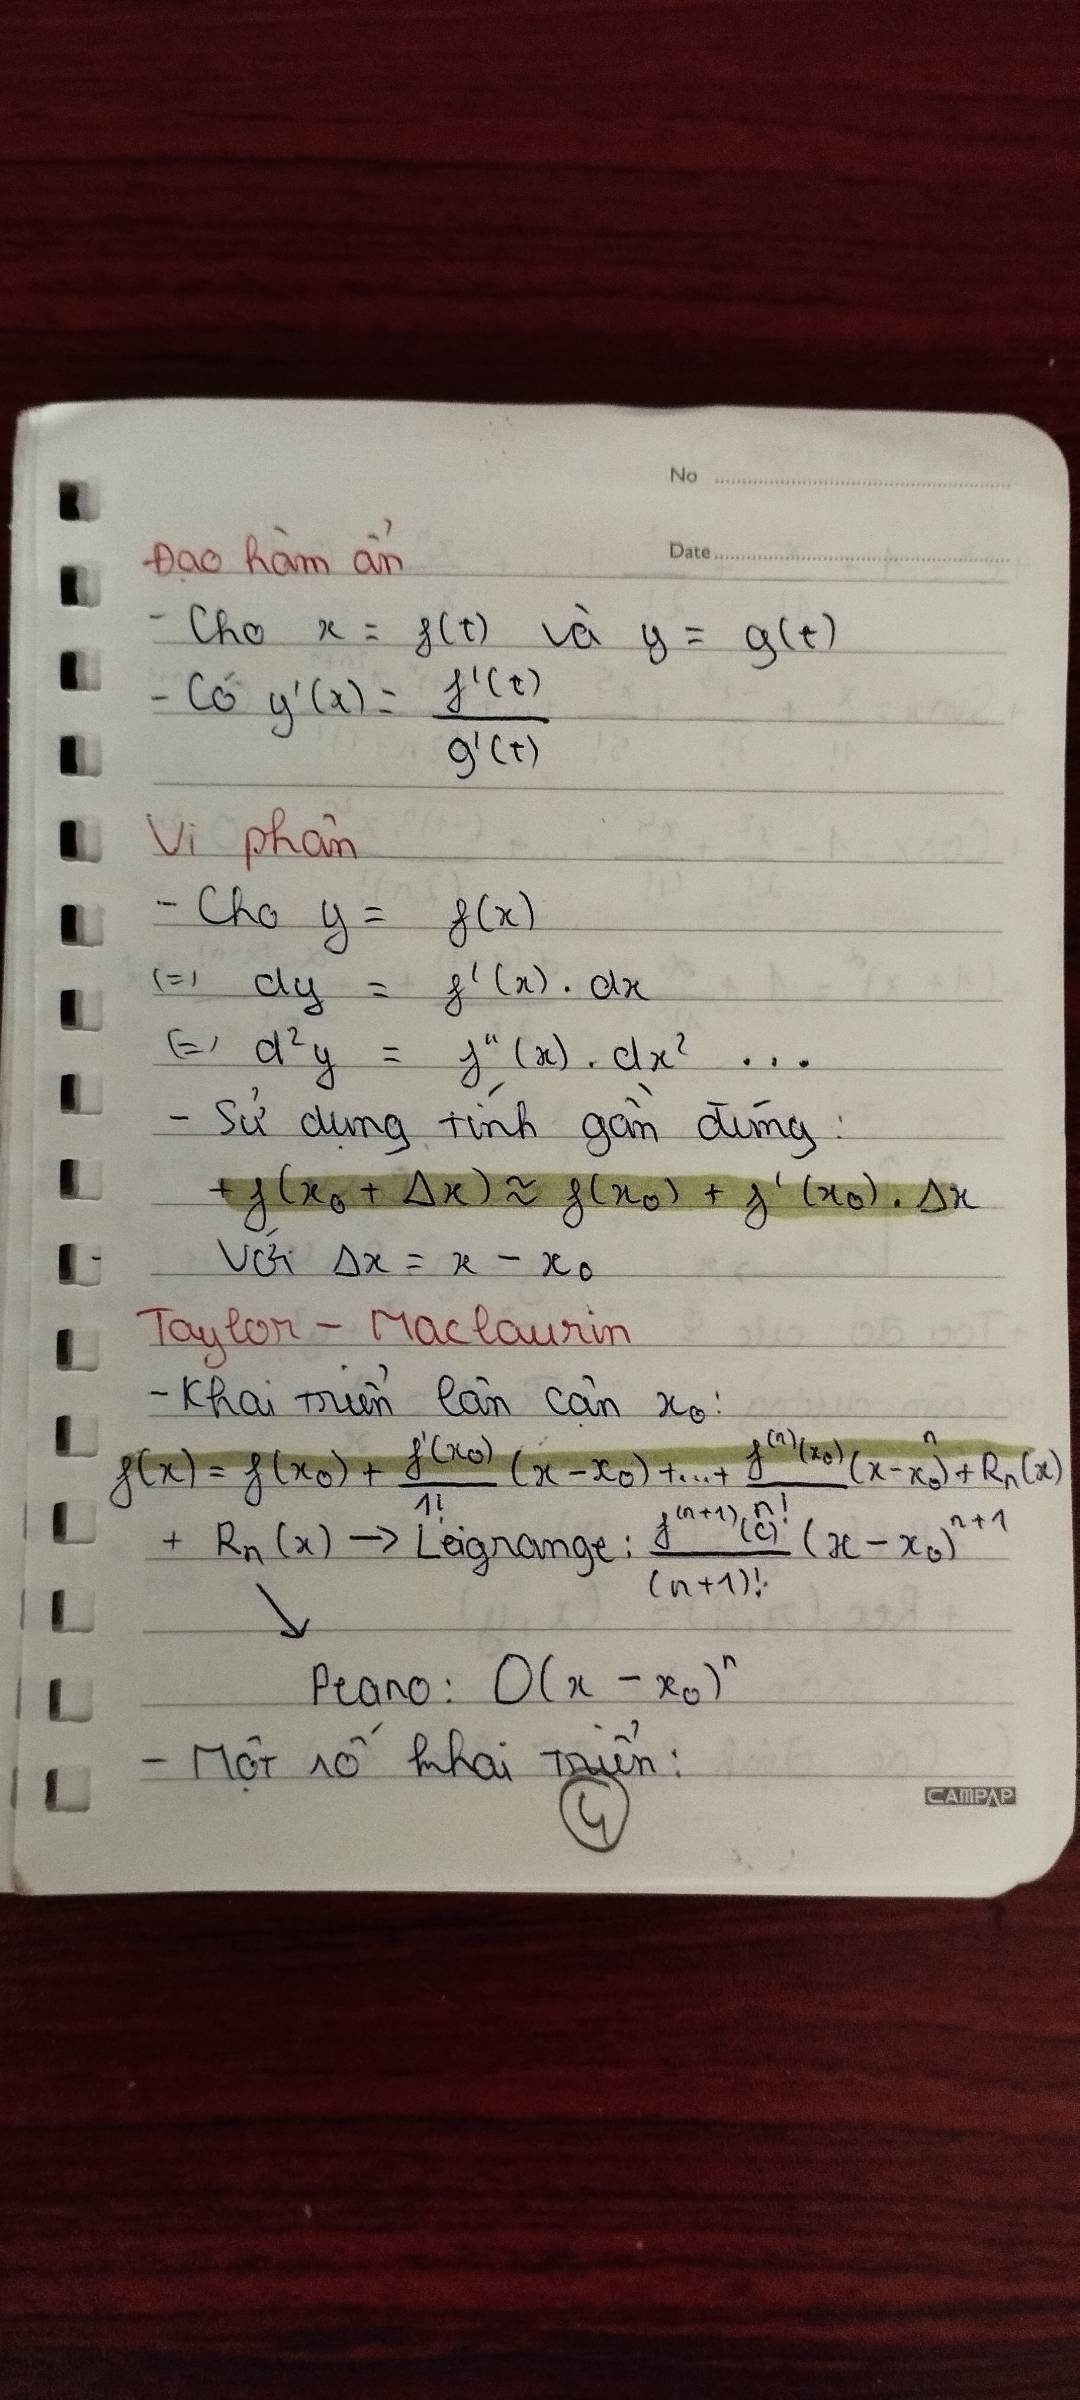 No
Date
Đạo hàm ẩn
- Cho x = f(t) và y = g(t)
- Có y'(x) = f'(t) / g'(t)
Vi phân
- Cho y = f(x)
(=) dy = f'(x) . dx
(=) d²y = f"(x) . dx² ...
- Sử dụng tính gần đúng:
+ f(x₀ + Δx) ≈ f(x₀) + f'(x₀) . Δx
Với Δx = x - x₀
Taylor - Maclaurin
- Khai triển lân cận x₀:
f(x) = f(x₀) + f'(x₀)/1! (x - x₀) + ... + f⁽ⁿ⁾(x₀)/n! (x - x₀)ⁿ + Rₙ(x)
+ Rₙ(x) → Leigrange: f⁽ⁿ⁺¹⁾(c)/(n+1)! (x - x₀)ⁿ⁺¹
↘
Peano: O(x - x₀)ⁿ
- Một số khai triển:
4
CAMPAP